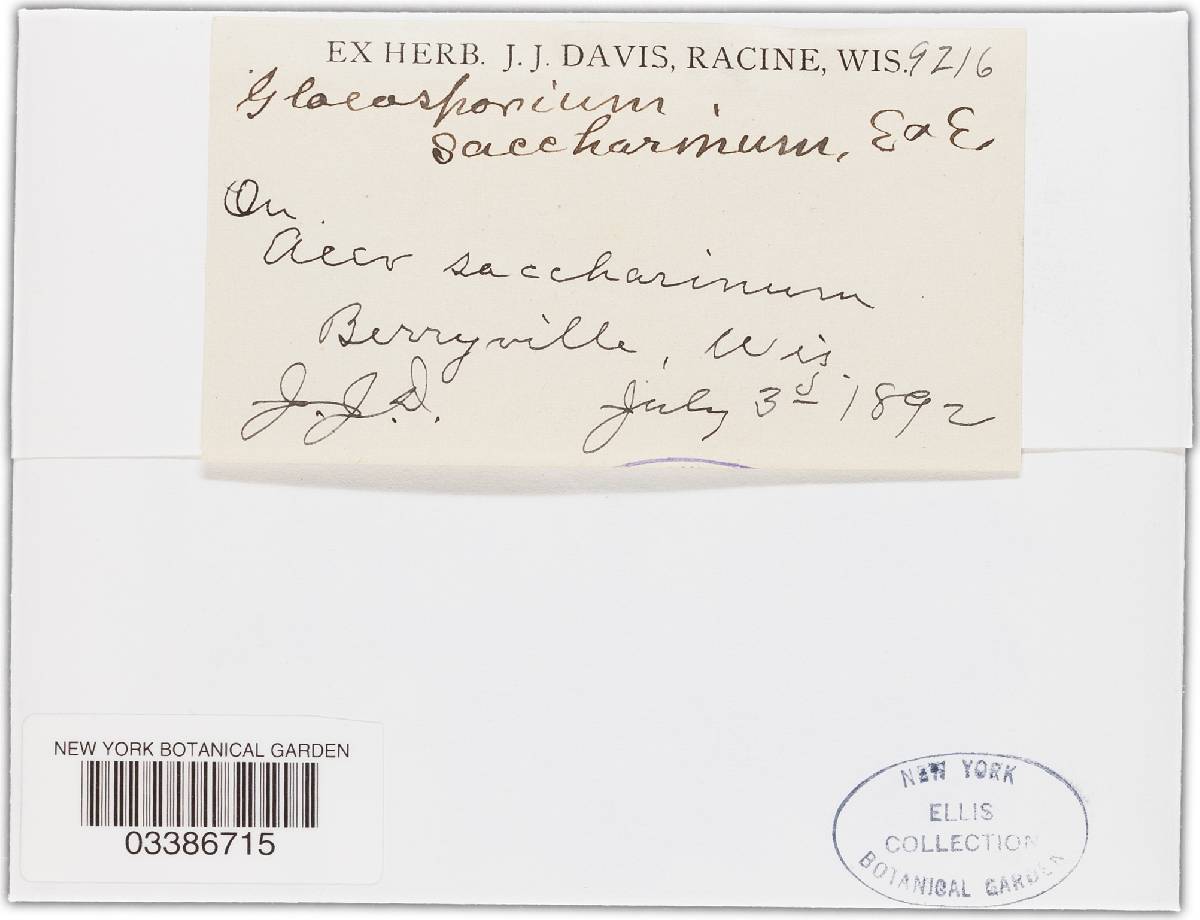 EX HERB. J. J. DAVIS, RACINE, WIS. 9216
Gloeosporium
saccharinum, E & E
On
Acer saccharinum
Berryville, Wis.
J. J. D. July 3d 1892
NEW YORK BOTANICAL GARDEN
03386715
NEW YORK
ELLIS
COLLECTION
BOTANICAL GARDEN